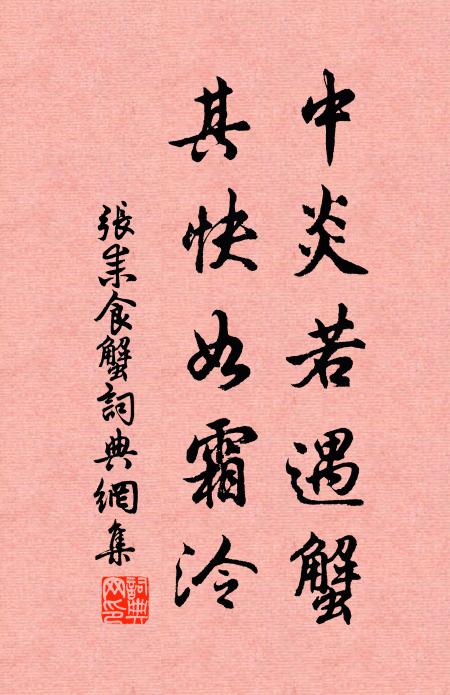 中炎若遇蟹
其快如霜泠
張耒食蟹詞典網集
詞典
网印